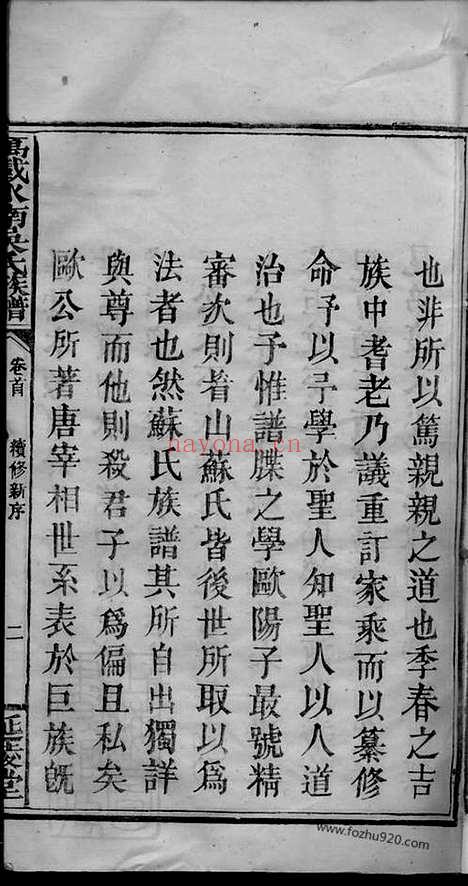 也非所以篤親親之道也季春之吉
族中耆老乃議重訂家乘而以纂修
命予以予學於聖人知聖人以人道
治也予惟譜牒之學歐陽子最號精
審次則眉山蘇氏皆後世所取以爲
法者也然蘇氏族譜其所自出獨詳
與尊而他則殺君子以爲偏且私矣
歐公所著唐宰相世系表於巨族旣
萬載水南吳氏族譜
卷首
續修新序
二
延陵堂
nayona.cn
www.fozhu920.com